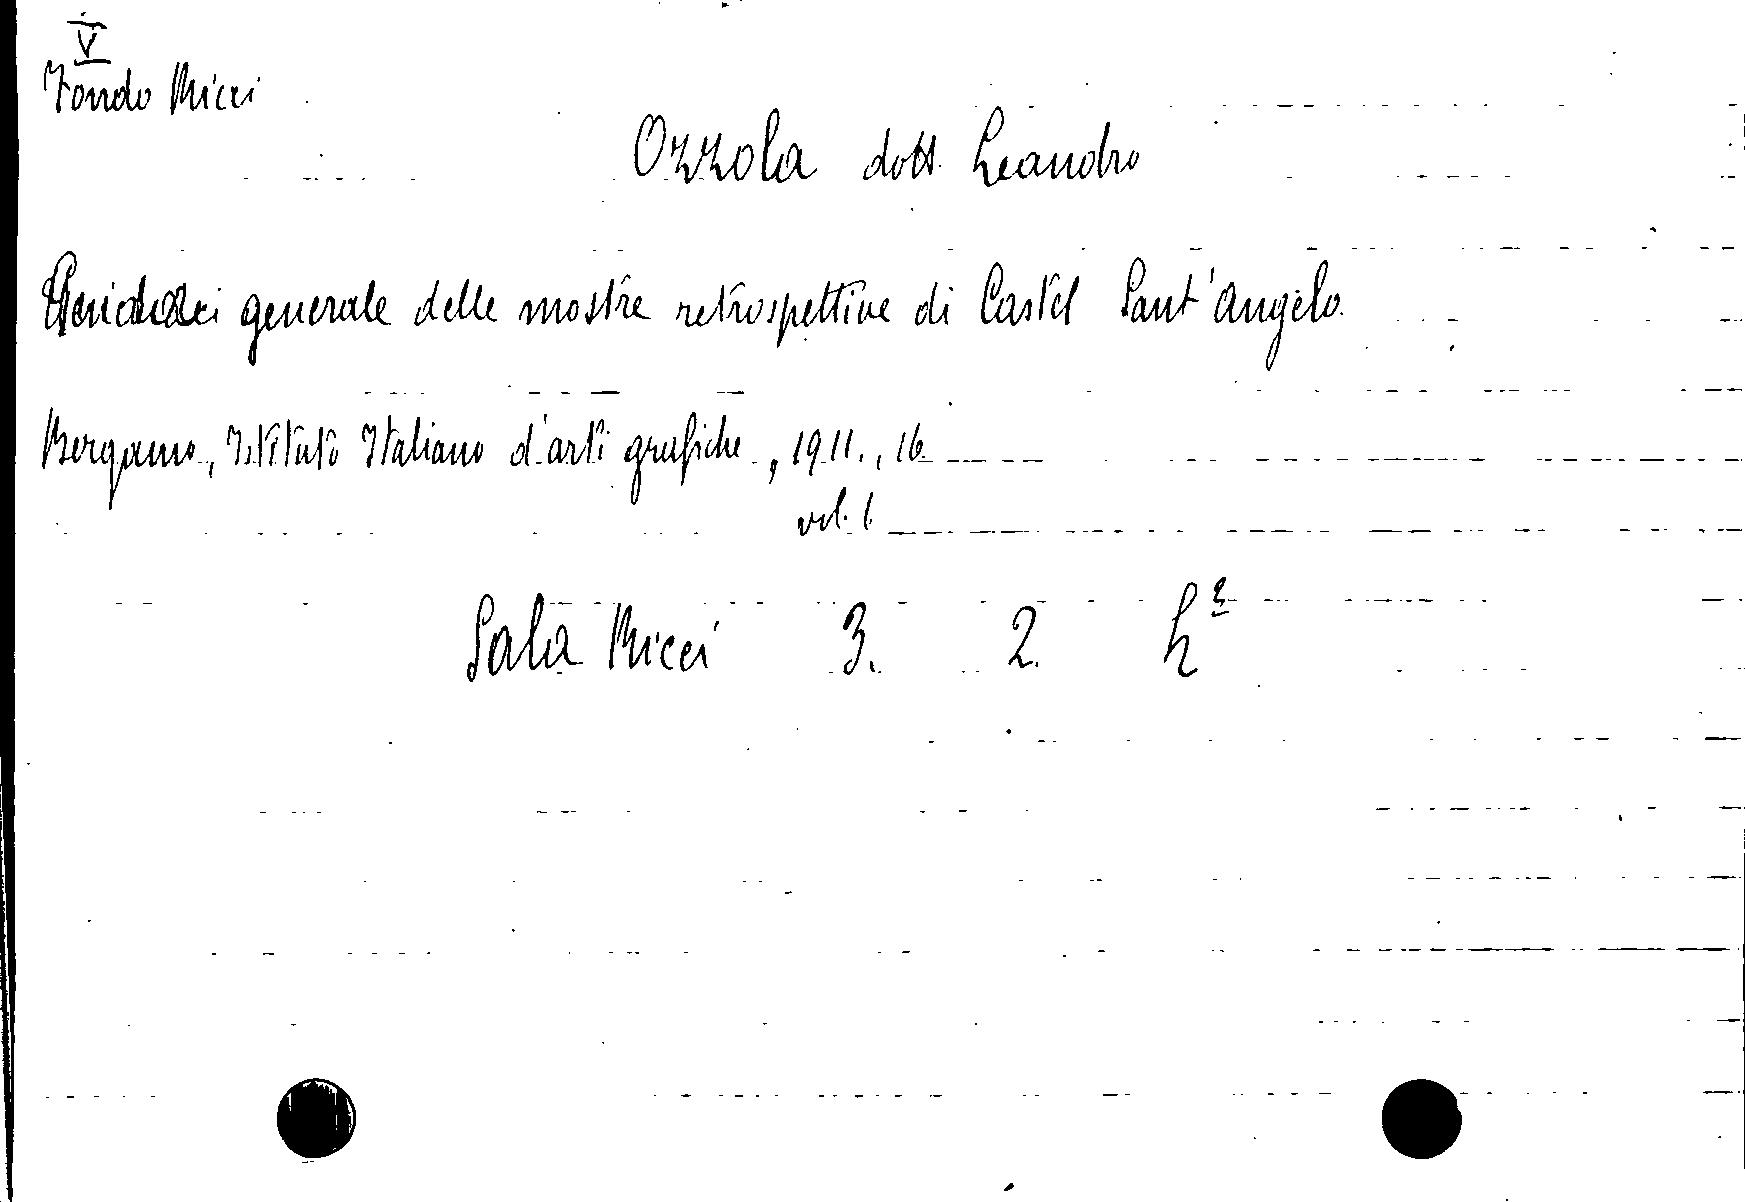 V
Fondo Ricci
Ozzola dott. Leandro
generale delle mostre retrospettive di Castel Sant'Angelo.
Bergamo, Istituto Italiano d'arti grafiche, 1911., 16
vol. 1.
Sala Ricci 3. 2.